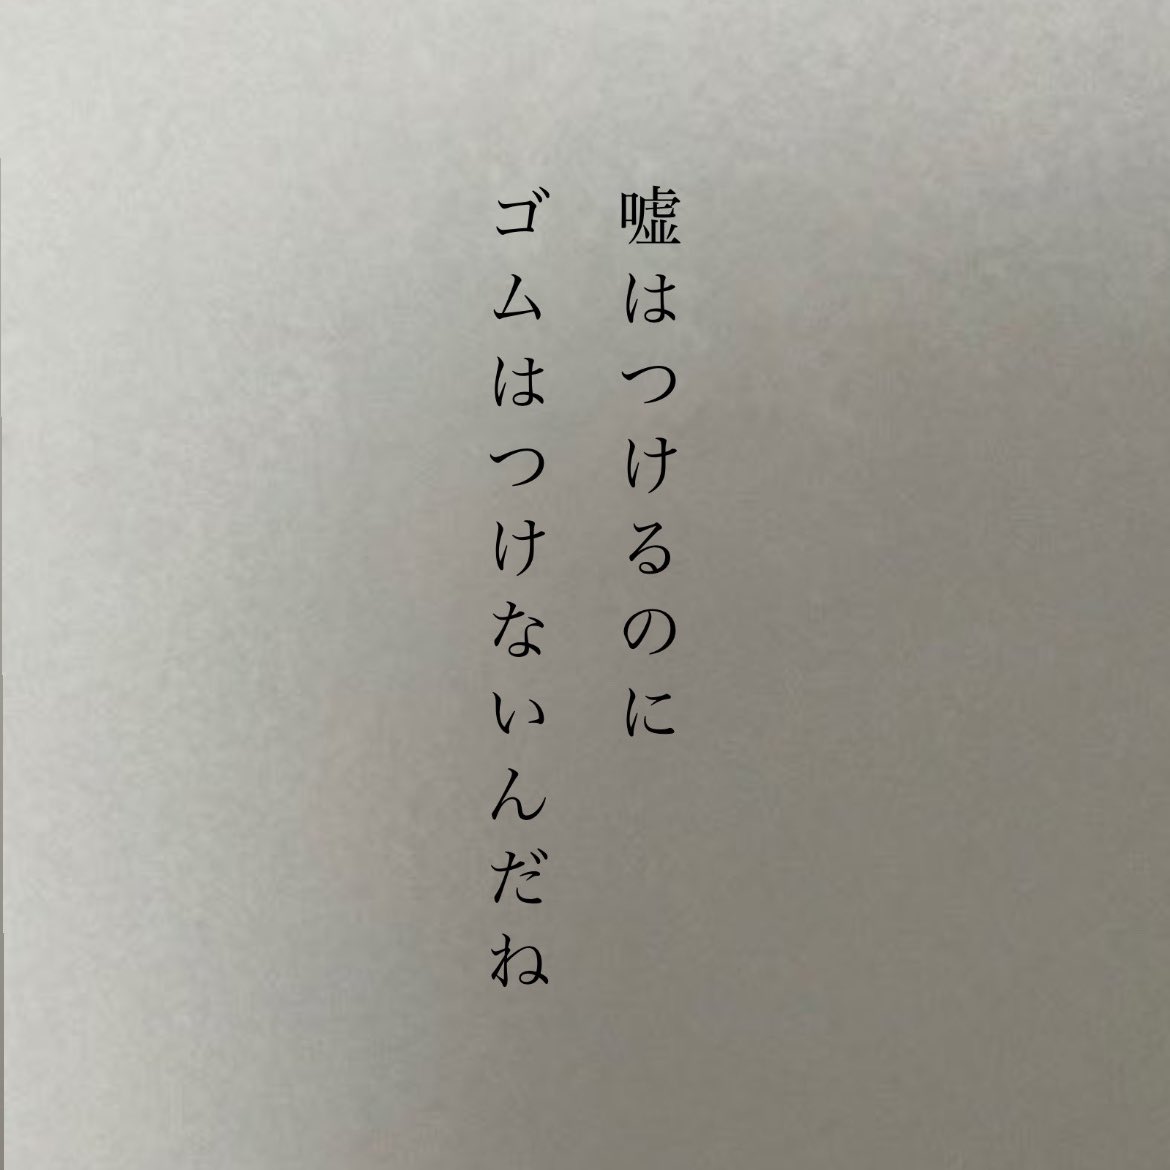 嘘はつけるのに
ゴムはつけないんだね